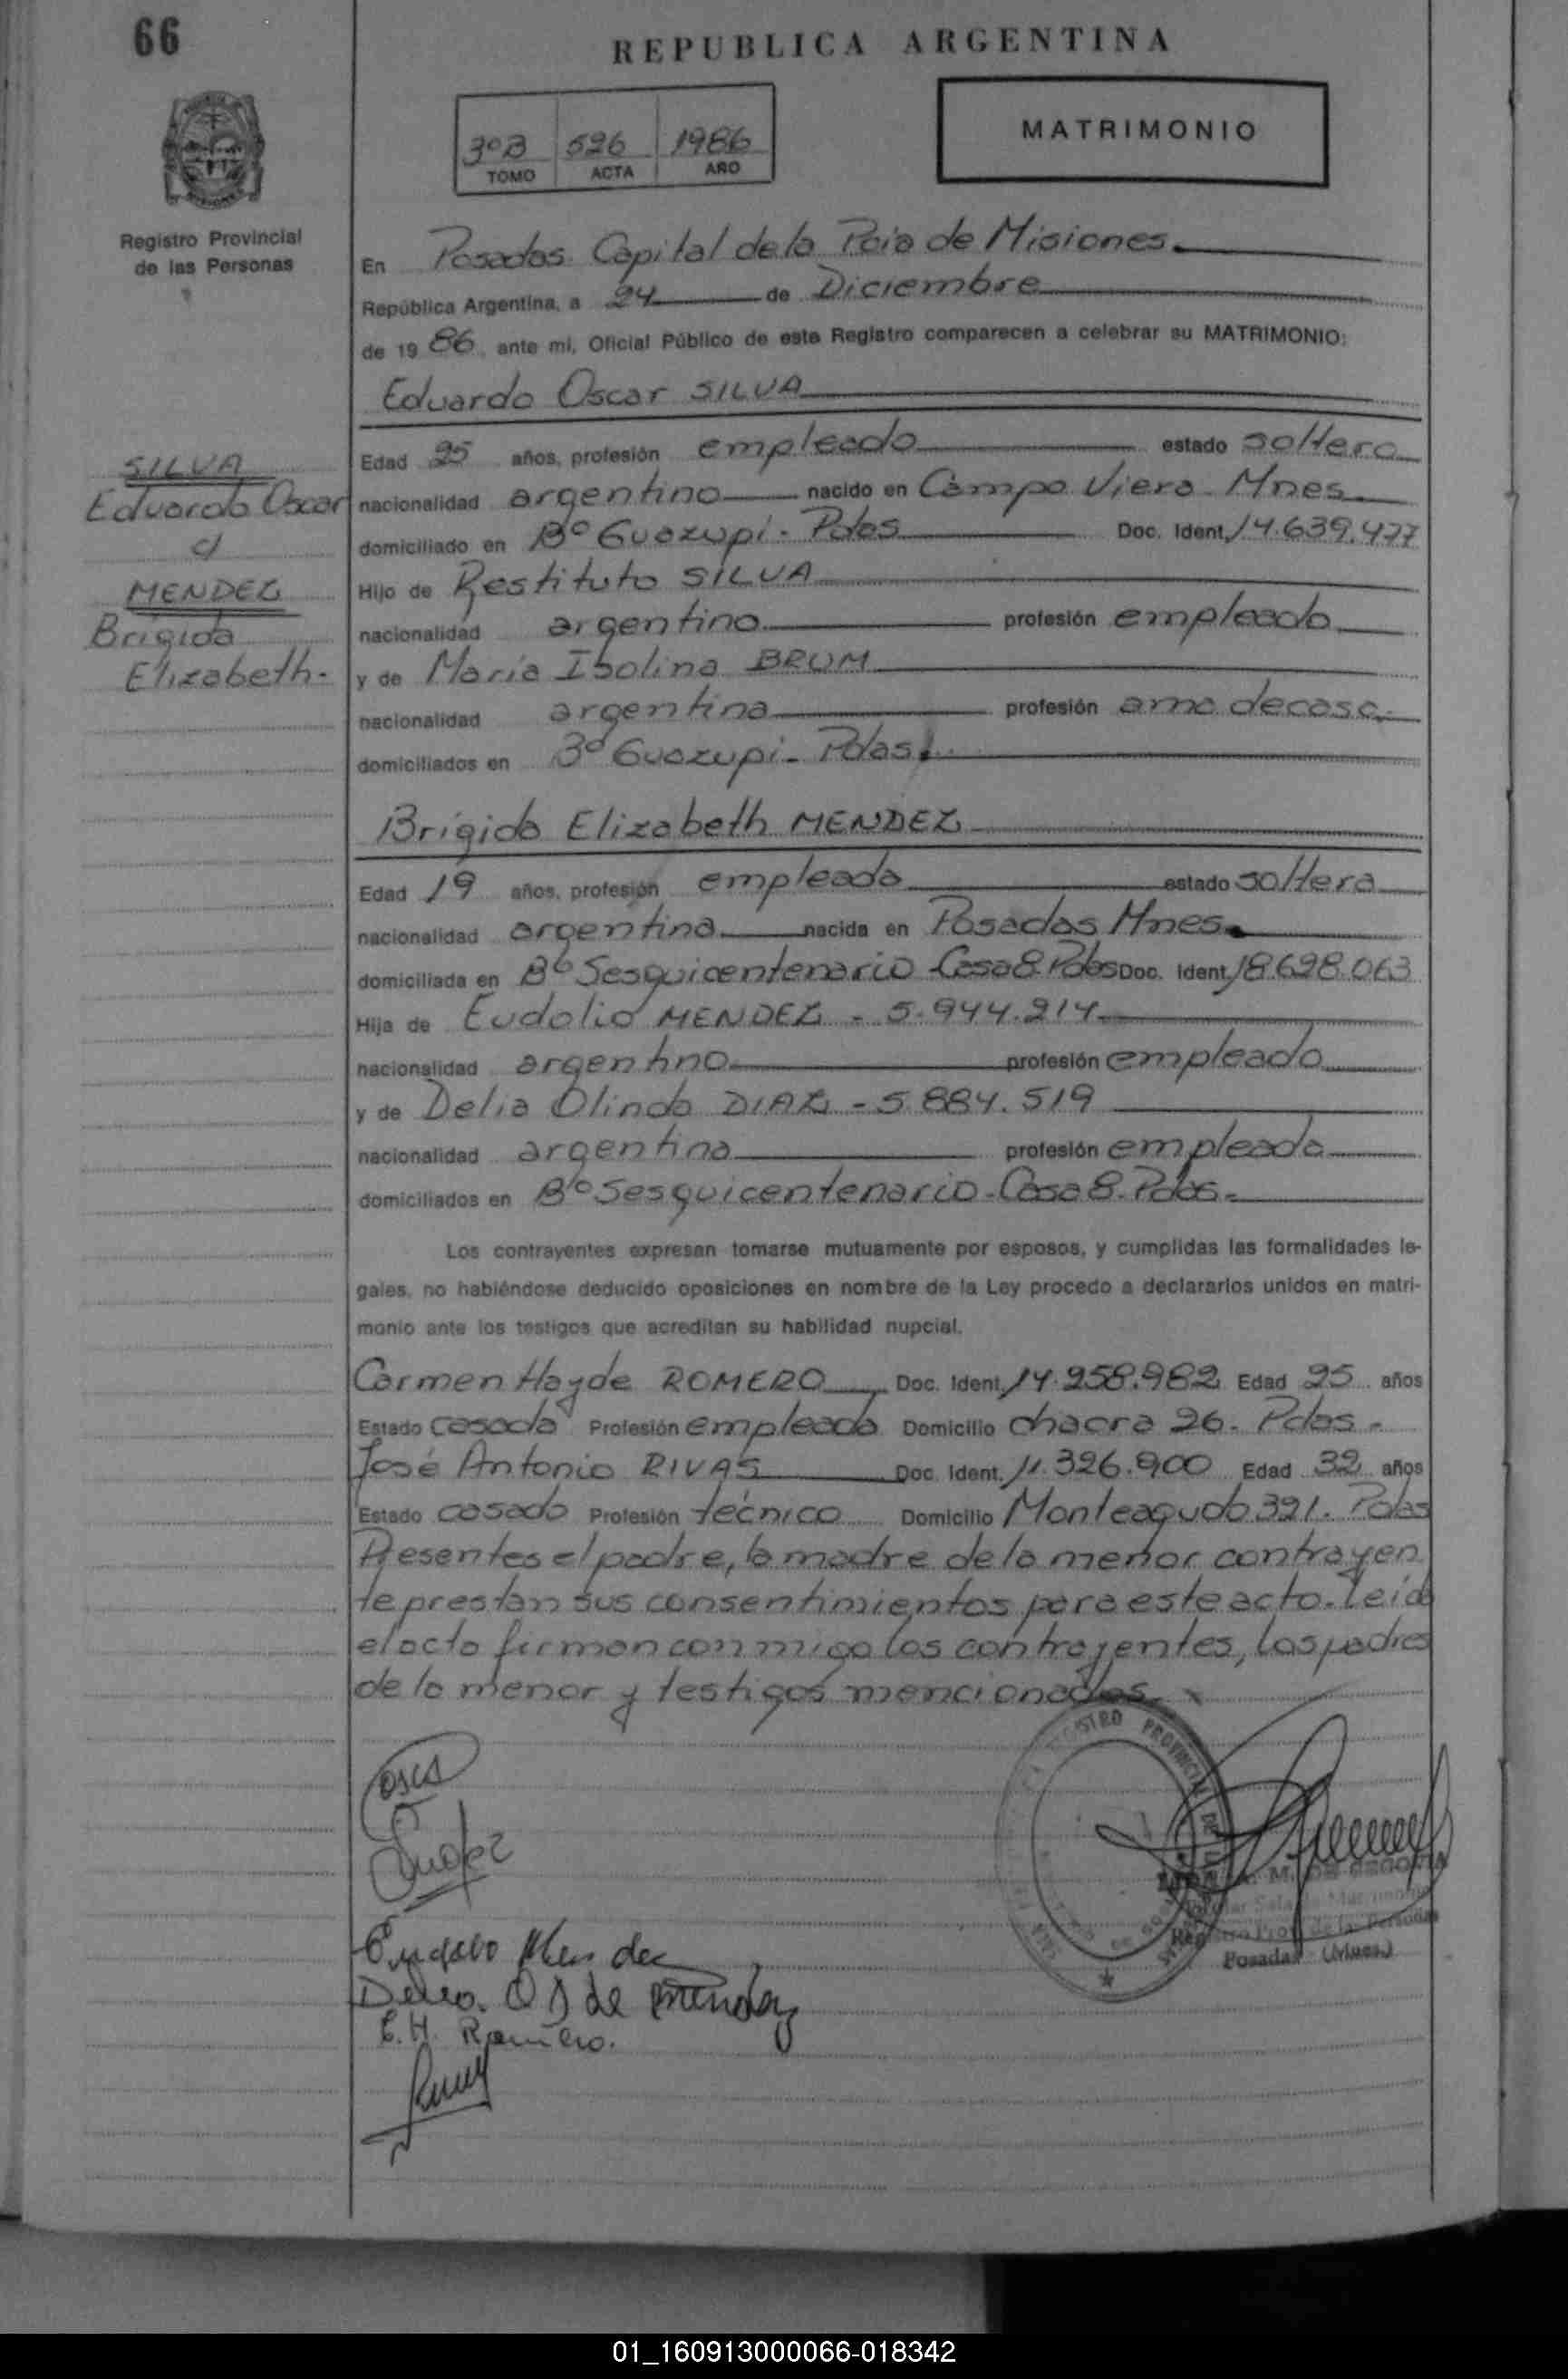 66
REPUBLICA ARGENTINA
3ºB 526 1986
TOMO ACTA AÑO
MATRIMONIO
Registro Provincial
de las Personas
En Posadas Capital de la Pcia de Misiones
República Argentina, a 24 de Diciembre
de 19 86 ante mi, Oficial Público de este Registro comparecen a celebrar su MATRIMONIO:
Eduardo Oscar SILVA
SILVA
Eduardo Oscar
c/
MENDEZ
Brígida
Elizabeth.
Edad 25 años, profesión empleado estado soltero
nacionalidad argentino nacido en Campo Viera Mnes
domiciliado en Bº Guazupi - Pdas Doc. Ident. 14.639.477
Hijo de Restituto SILVA
nacionalidad argentino profesión empleado
y de María Isolina BRUM
nacionalidad argentina profesión ama de casa
domiciliados en Bº Guazupi - Pdas.
Brígida Elizabeth MENDEZ
Edad 19 años, profesión empleada estado soltera
nacionalidad argentina nacida en Posadas Mnes
domiciliada en Bº Sesquicentenario Casa 8 Pdas Doc. Ident. 18.628.063
Hija de Eudolio MENDEZ - 5.944.214
nacionalidad argentino profesión empleado
y de Delia Olinda DIAZ - 5.884.519
nacionalidad argentina profesión empleada
domiciliados en Bº Sesquicentenario - Casa 8. Pdas.
Los contrayentes expresan tomarse mutuamente por esposos, y cumplidas las formalidades le-
gales, no habiéndose deducido oposiciones en nombre de la Ley procedo a declararlos unidos en matri-
monio ante los testigos que acreditan su habilidad nupcial.
Carmen Hayde ROMERO Doc. Ident. 14.258.982 Edad 25 años
Estado casada Profesión empleada Domicilio chacra 26 - Pdas -
José Antonio RIVAS Doc. Ident. 11.326.900 Edad 32 años
Estado casado Profesión técnico Domicilio Monteagudo 321. Pdas
Presentes el padre, la madre de la menor contrayen
te prestan sus consentimientos para este acto. Leída
el acta firman conmigo los contrayentes, los padres
de la menor y testigos mencionados.
REGISTRO PROVINCIAL DE LAS
Mendez
C.H. Romero.
Posadas (Mnes.)
01_160913000066-018342